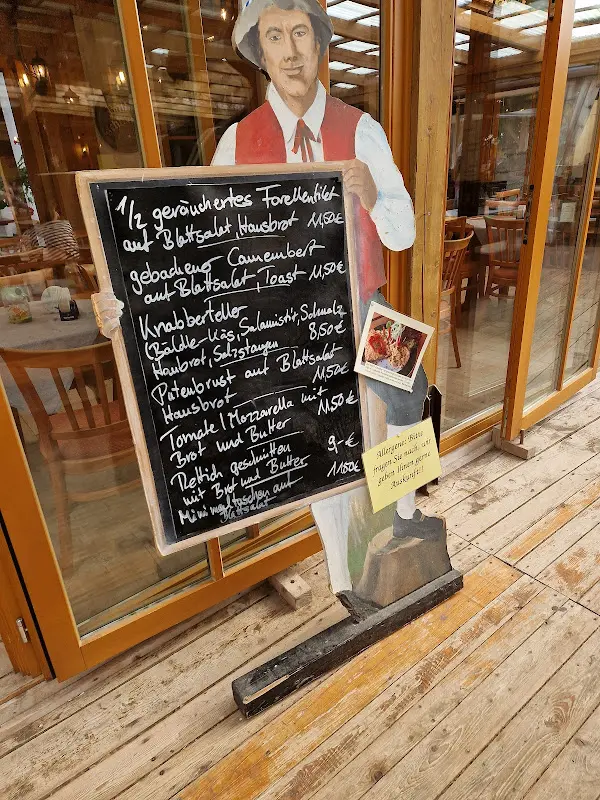 1/2 geräuchertes Forellenfilet
auf Blattsalat, Hausbrot 11,50€
gebackener Camembert
auf Blattsalat, Toast 11,50€
Knabberteller
(Bällele-Käs, Salamistix, Schmalz
Hausbrot, Salzstangen 8,50€
Putenbrust auf Blattsalat
Hausbrot 11,50€
Tomate/Mozzarella mit 11,50€
Brot und Butter
Rettich geschnitten 9,-€
mit Brot und Butter
Minimaultaschen auf 11,50€
Blattsalat
Allergene: Bitte
fragen Sie nach, wir
geben Ihnen gerne
Auskunft!